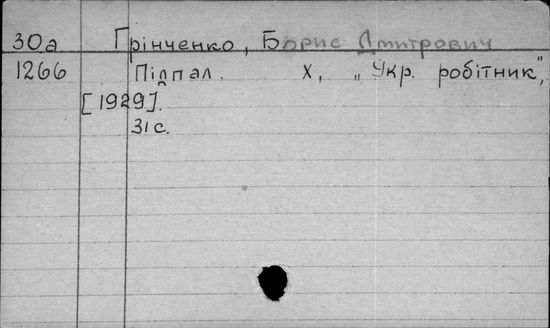 30а Грінченко, Борис Дмитрович
1266 Підпал. Х, „Укр. робітник",
[1929].
31с.